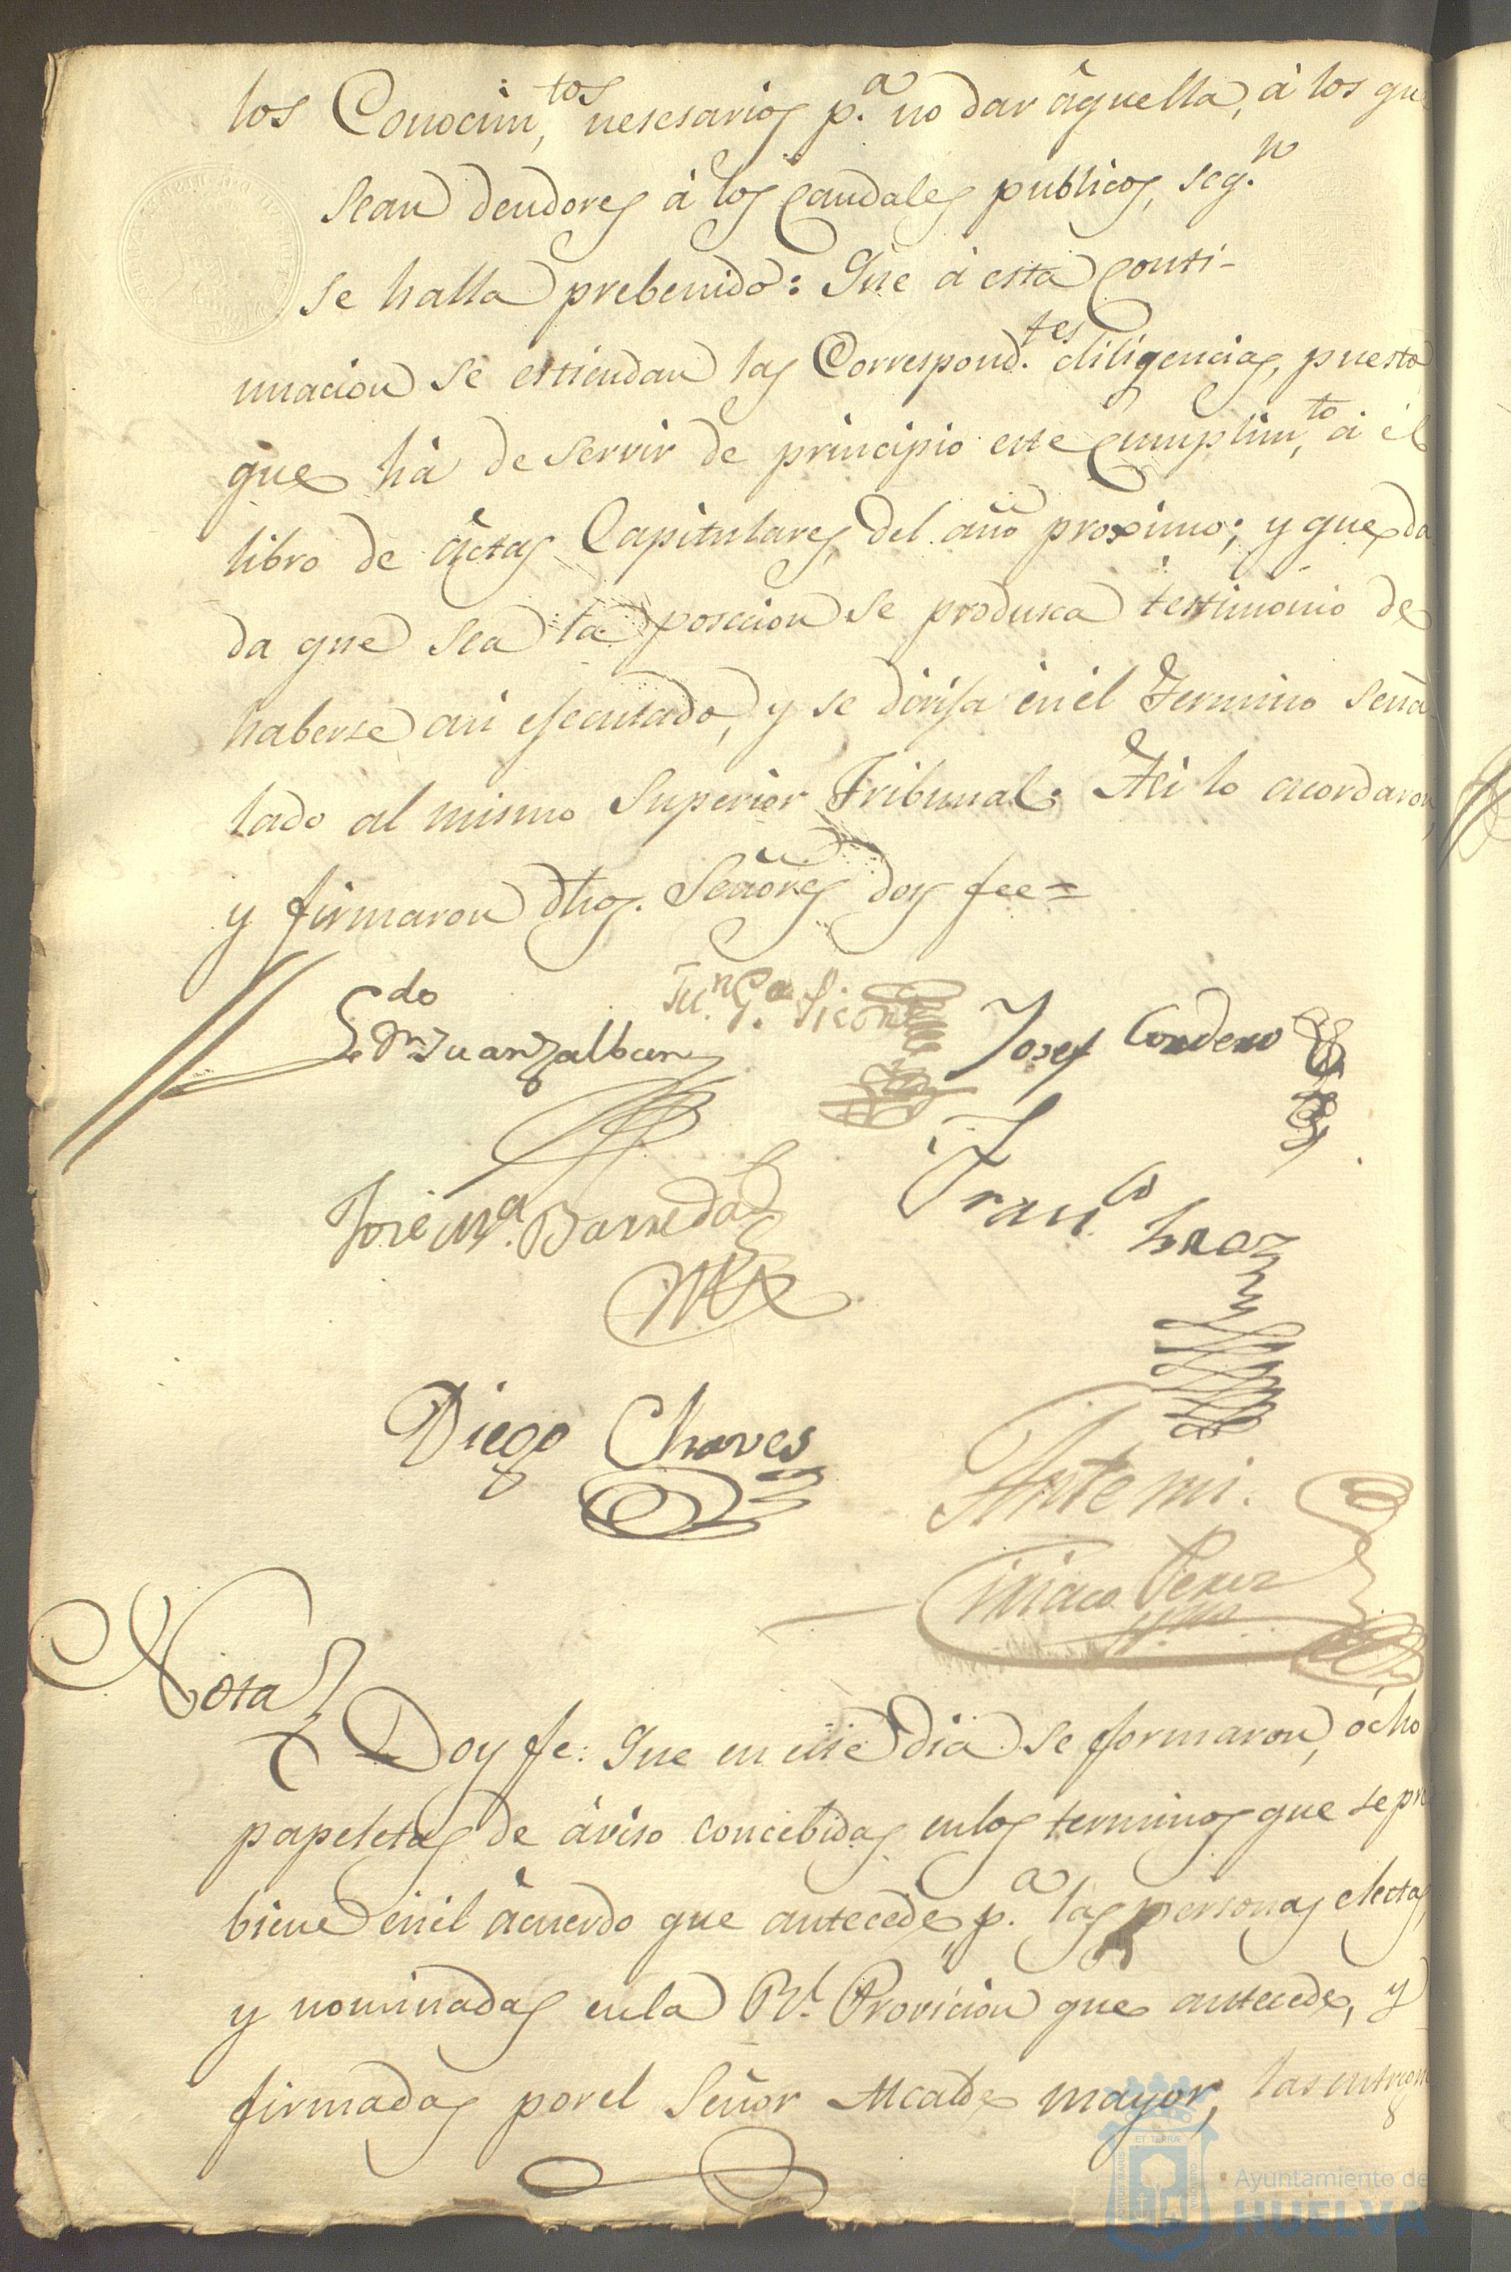 los Conocim.tos nesesarios p.a no dar áquella, á los que
sean deudores á los Caudales publicos, seg.n
se halla prebenido: Que á esta Conti-
nuacion se estiendan las Correspond.tes diligencias, puesto
que há de servir de principio este Cumplim.to á él
libro de áctas Capitulares, del año proximo; y que da
da que sea la posecion se produsca testimonio de
haberse asi ejecutado, y se dirija en él Termino seña
lado al mismo Superior Tribunal. Asi lo acordaron,
y firmaron dhos. Señores doy fee=
L.do Dn Juan Jalban
Ju.n G.a
Josef Cordero
José M.a Barreda
Fran.co
Diego Chaves
Ante mi.
Ciriaco Perez
Nota
Doy fe: Que en este Dia se formaron, ócho
papeletas de áviso concebidas en los terminos que se pre
biene en él ácuerdo que antecede, p.a las personas electas,
y nominadas en la Rl. Provicion que antecede, y
firmadas por el Señor Alcalde mayor, las entregue
Ayuntamiento de
HUELVA